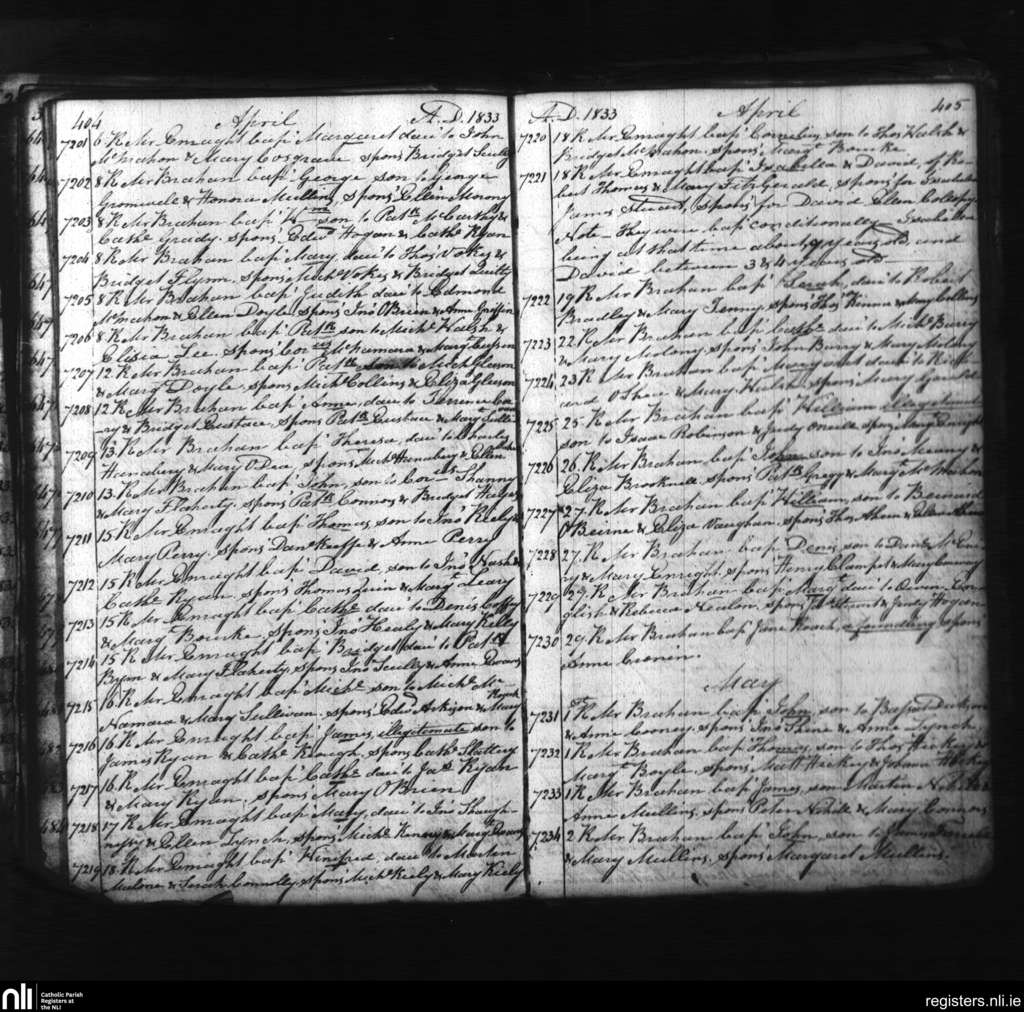 404 April A.D. 1833
7201 6 R Mr Enraght bap^d Margaret dau^r to John
McMahon & Mary Cosgrave, spons^rs Bridget Scully
7202 8 R Mr Brahan bap^d George son to George
Gromwell & Honora Mullins, spons^rs Ellen Morony
7203 8 R Mr Brahan bap^d W^m son to Pat^k McCarthy &
Cath^e Grady. spons^rs Edw^d Hogan & Cath^e Ryan
7204 8 R Mr Brahan bap^d Mary, dau^r to Tho^s Vokes &
Bridget Flynn. spons^rs Mich^l Vokes & Bridget Quilty
7205 8 R Mr Brahan bap^d Judith dau^r to Edmond
McMahon & Ellen Doyle. spons^rs Jno O'Brien & Anne Griffin
7206 8 R Mr Brahan bap^d Pat^k son to Mich^l Walsh &
Elisia Lee. spons^rs Cor^s McNamara & Mary
7207 12 R Mr Brahan bap^d Pat^k son to Mich^l Gleeson
& Marg^t Doyle. spons^rs Mich^l Collins & Eliza Gleeson
7208 12 R Mr Brahan bap^d Anne, dau^r to Terrence
& Bridget Eustace, spons^rs Pat^k Eustace & Mary
7209 13 R Mr Brahan bap^d Theresa, dau^r to Charles
Henebery & Mary O'Dea, spons^rs Mich^l Henebery & Ellen
7210 13 R Mr Brahan bap^d John, son to Cor^s Shanny
& Mary Flaherty. spons^rs Pat^k Connor & Bridget Hayes
7211 15 R Mr Enraght bap^d Thomas, son to Jno Kiely &
Mary Perry. spons^rs Dan^l Keeffe & Anne Perry
7212 15 R Mr Enraght bap^d David, son to Jno Nash &
Cath^e Ryan. spons^rs Thomas Quin & Marg^t Leary
7213 15 R Mr Enraght bap^d Cath^e dau^r to Denis Coffey
& Marg^t Bourke. spons^rs Jno Healy & Mary Kelly
7214 15 R Mr Enraght bap^d Bridget, dau^r to Pat^k
Bryan & Mary Flaherty. spons^rs Jno Scully & Anne Evans
7215 16 R Mr Enraght bap^d Mich^l son to Mich^l Mc
Namara & Mary Sullivan. spons^rs Edw^d Arkison & Mary Ryan
7216 16 R Mr Enraght bap^d James, illegitimate son to
James Ryan & Cath^e Keough, spons^rs Cath^e Slattery
7217 16 R Mr Enraght bap^d Cath^e dau^r to Ja^s Ryan
& Mary Ryan. spons^rs Mary O'Brien
7218 17 R Mr Enraght bap^d Mary, dau^r to Jno Shaugh-
nessy & Ellen Lynch, spons^rs Mich^l Kenny & Mary Evans
7219 18 R Mr Enraght bap^d Winifred, dau^r to Martin
Malone & Sarah Connolly. spons^rs Mich^l Kiely & Mary Kiely
A.D. 1833 April 405
7220 18 R Mr Enraght bap^d Cornelius, son to Tho^s Walsh &
Bridget McMahon. spons^rs Marg^t Bourke
7221 18 R Mr Enraght bap^d Isabella & David, of Ro-
bert Thomas & Mary FitzGerald, spons^rs for Isabella
James Stewart, spons^rs for David Ellen Collopy
Note They were bap^d conditionally Isabella
being at that time about years old and
David between 3 & 4 years old
7222 19 R Mr Brahan bap^d Sarah, dau^r to Robert
Bradley & Mary Tenny, spons^rs Tho^s Kinna & Amy Collins
7223 22 R Mr Brahan bap^d Cath^e dau^r to Mich^l Barry
& Mary Molony, spons^rs John Barry & Mary Molony
7224 23 R Mr Brahan bap^d Mary dau^r to Rich-
ard O'Shea & Mary Walsh spons^rs Mary
7225 25 R Mr Brahan bap^d William illegitimate
son to Isaac Robinson & Judy Oneill spons^rs Mary Enright
7226 26. R Mr Brahan bap^d John son to Jno Meany &
Eliza Brooknell spons^rs Pat^k Gregg & Marg^t McMahon
7227 27. R Mr Brahan bap^d William, son to Bernard
Beirne & Eliza Vaughan. spons^rs Tho^s Ahern & Ellen Ahern
7228 27. R Mr Brahan bap^d Denis son to Dan^l McEne-
ry & Mary Enright. spons^rs Henry Clampet & Mary Conway
7229 29. R Mr Brahan bap^d Marg^t dau^r to Owen En-
glish & Rebecca Nealon, spons^rs & Judy Hogan
7230 29. R Mr Brahan bap^d Jane Roach, a foundling spons^rs
Anne Cronin.
May
7231 1^st R Mr Brahan bap^d John, son to
& Anne Cooney. spons^rs Jno Shine & Anne Lynch
7232 1 R Mr Brahan bap^d Thomas, son to Tho^s Hickey &
Marg^t Boyle. spons^rs Matt Hickey & Johanna Hickey
7233 1 R Mr Brahan bap^d James, son Martin Nihill &
Anne Mullins. spons^rs Peter Nihill & Mary Connors
7234 2 R Mr Brahan bap^d John, son to James
& Mary Mullins. spons^rs Margaret Mullins.
nli Catholic Parish
Registers at
the NLI
registers.nli.ie